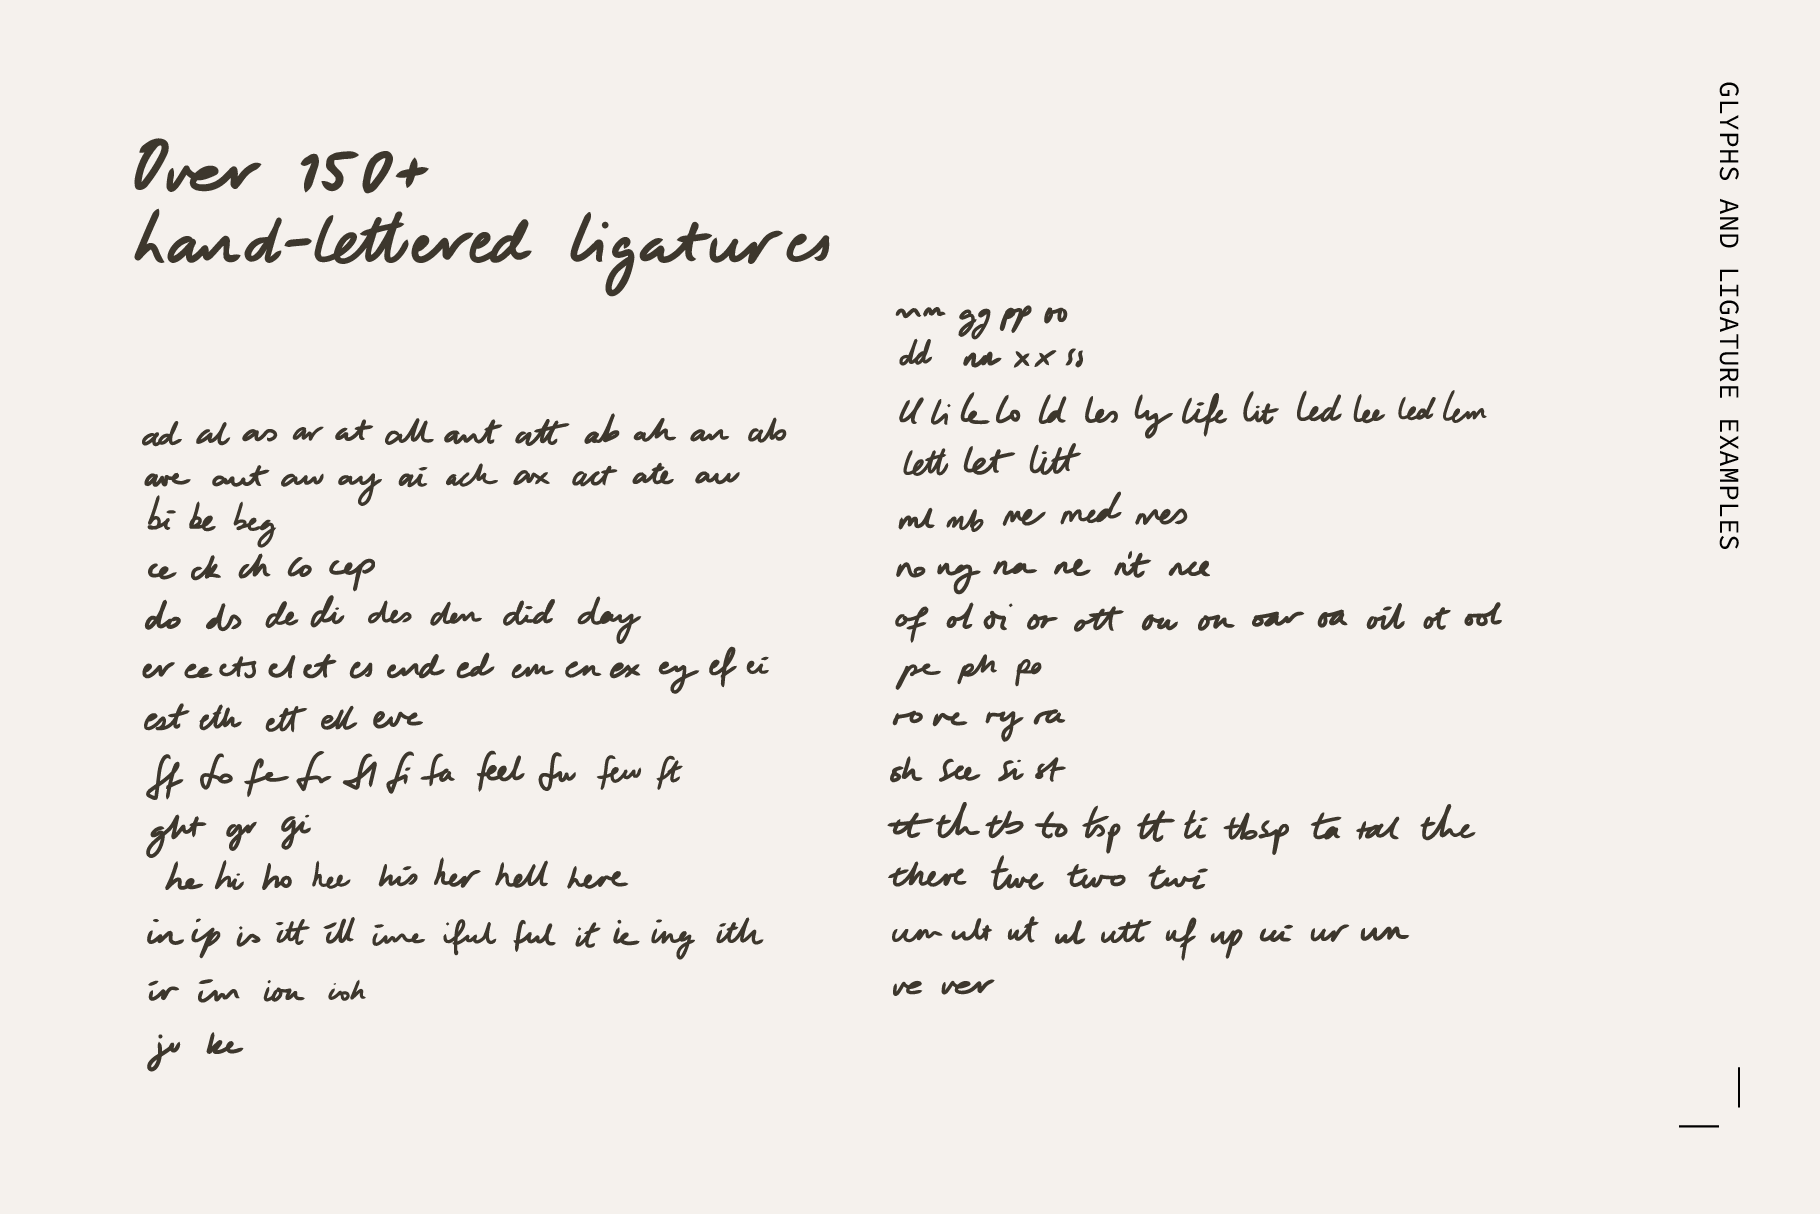 Over 150+
hand-lettered ligatures
ad al as ar at all ant att ab ah an als
are out aw ay ai ach ax act ate aw
bi be beg
ce ck ch co cep
do ds de di des den did day
er ee cts el et es end ed em en ex ey ef ei
est eth ett ell eve
ff fo fe fr fl fi fa feel fw few ft
ght gr gi
he hi ho hee his her hell here
in ip is itt ill ime iful ful it ie ing ith
ir im ion ish
ju ke
mm gg pp oo
dd nn xx ss
ll li le lo ld les ly life lit led lee led lem
lett let litt
ml mb me med mes
no ng na ne n't nce
of ol oi or ott ou on oar oa oil ot ool
pe ph po
ro re ry ra
sh see si st
tt th tb to tsp tt ti tbsp ta tal the
there twe two twi
um ult ut ul utt uf up ui ur un
ve ver
GLYPHS AND LIGATURE EXAMPLES